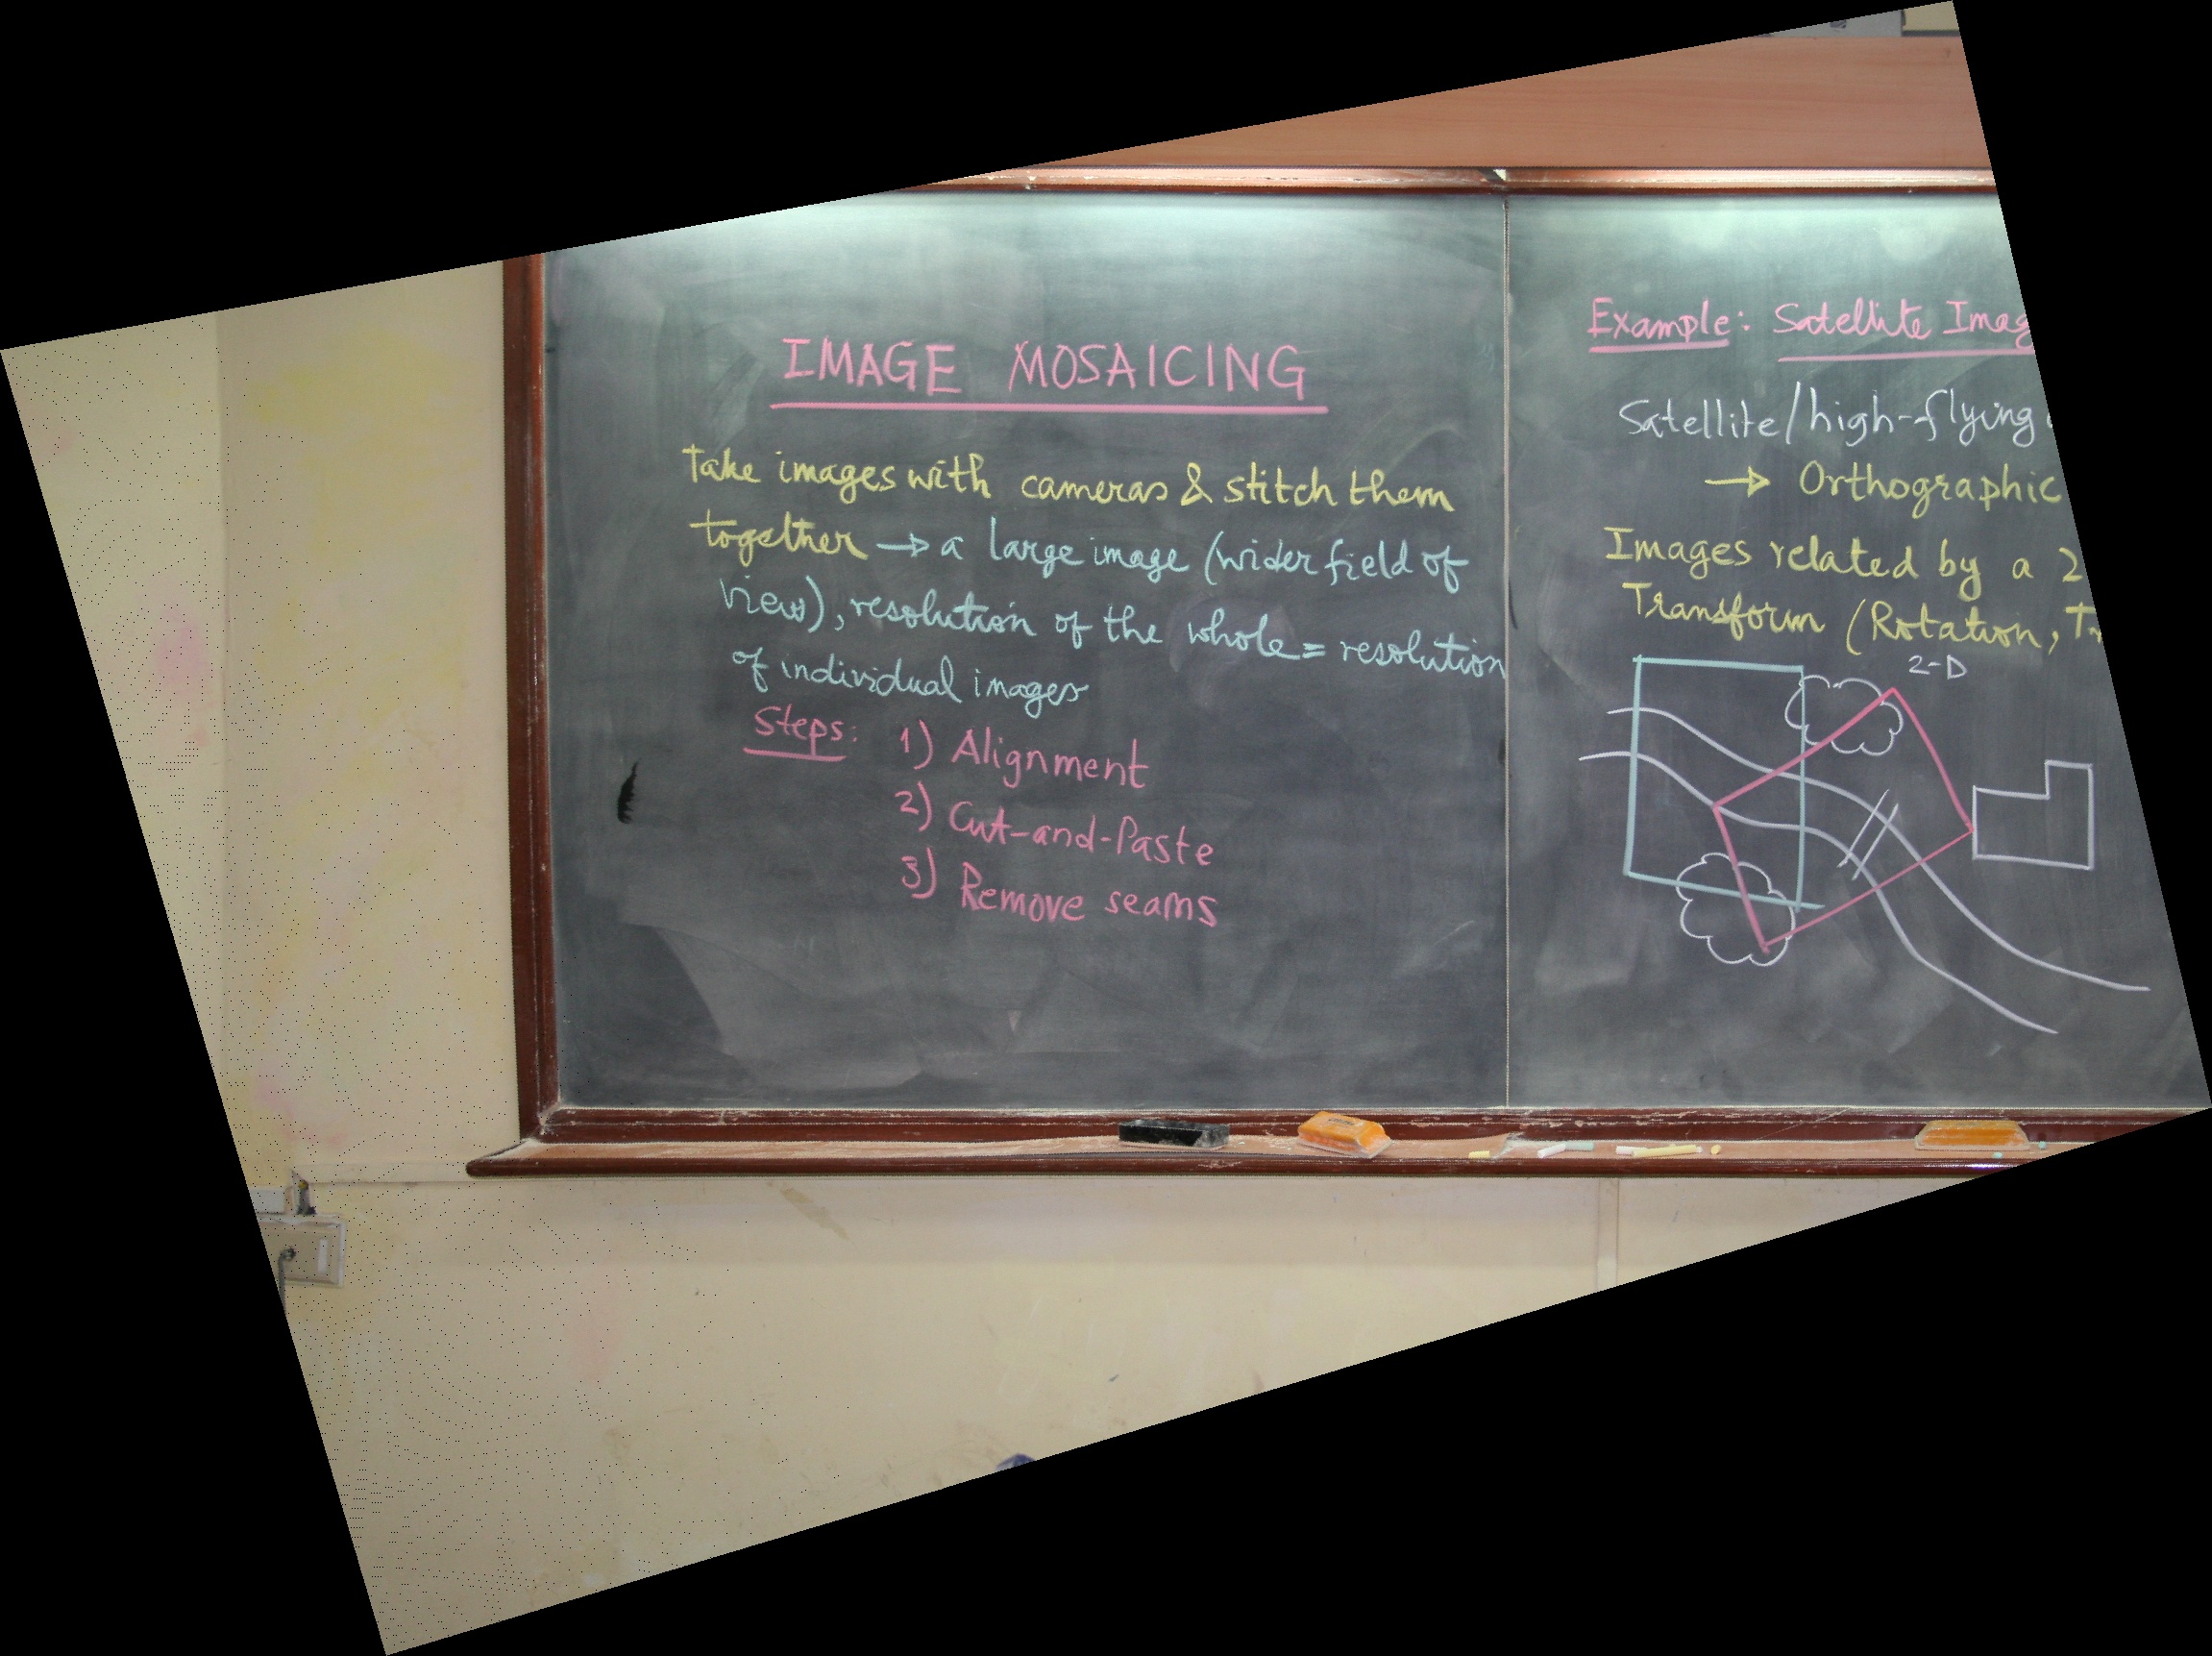 IMAGE MOSAICING
Take images with cameras & stitch them
together → a large image (wider field of
view), resolution of the whole = resolution
of individual images
Steps: 1) Alignment
2) Cut-and-Paste
3) Remove seams
Example: Satellite Imag
Satellite/high-flying
→ Orthographic
Images related by a 2
Transform (Rotation, Tr
2-D